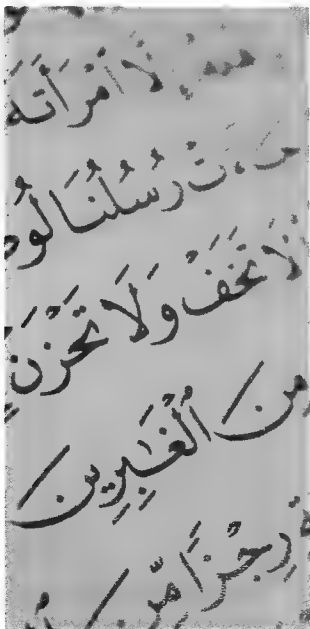 إِلَّا ٱمْرَأَتَهُۥ
جَآءَتْ رُسُلُنَا لُوطًا
لَا تَخَفْ وَلَا تَحْزَنْ
مِنَ ٱلْغَٰبِرِينَ
رِجْزًا مِّنَ